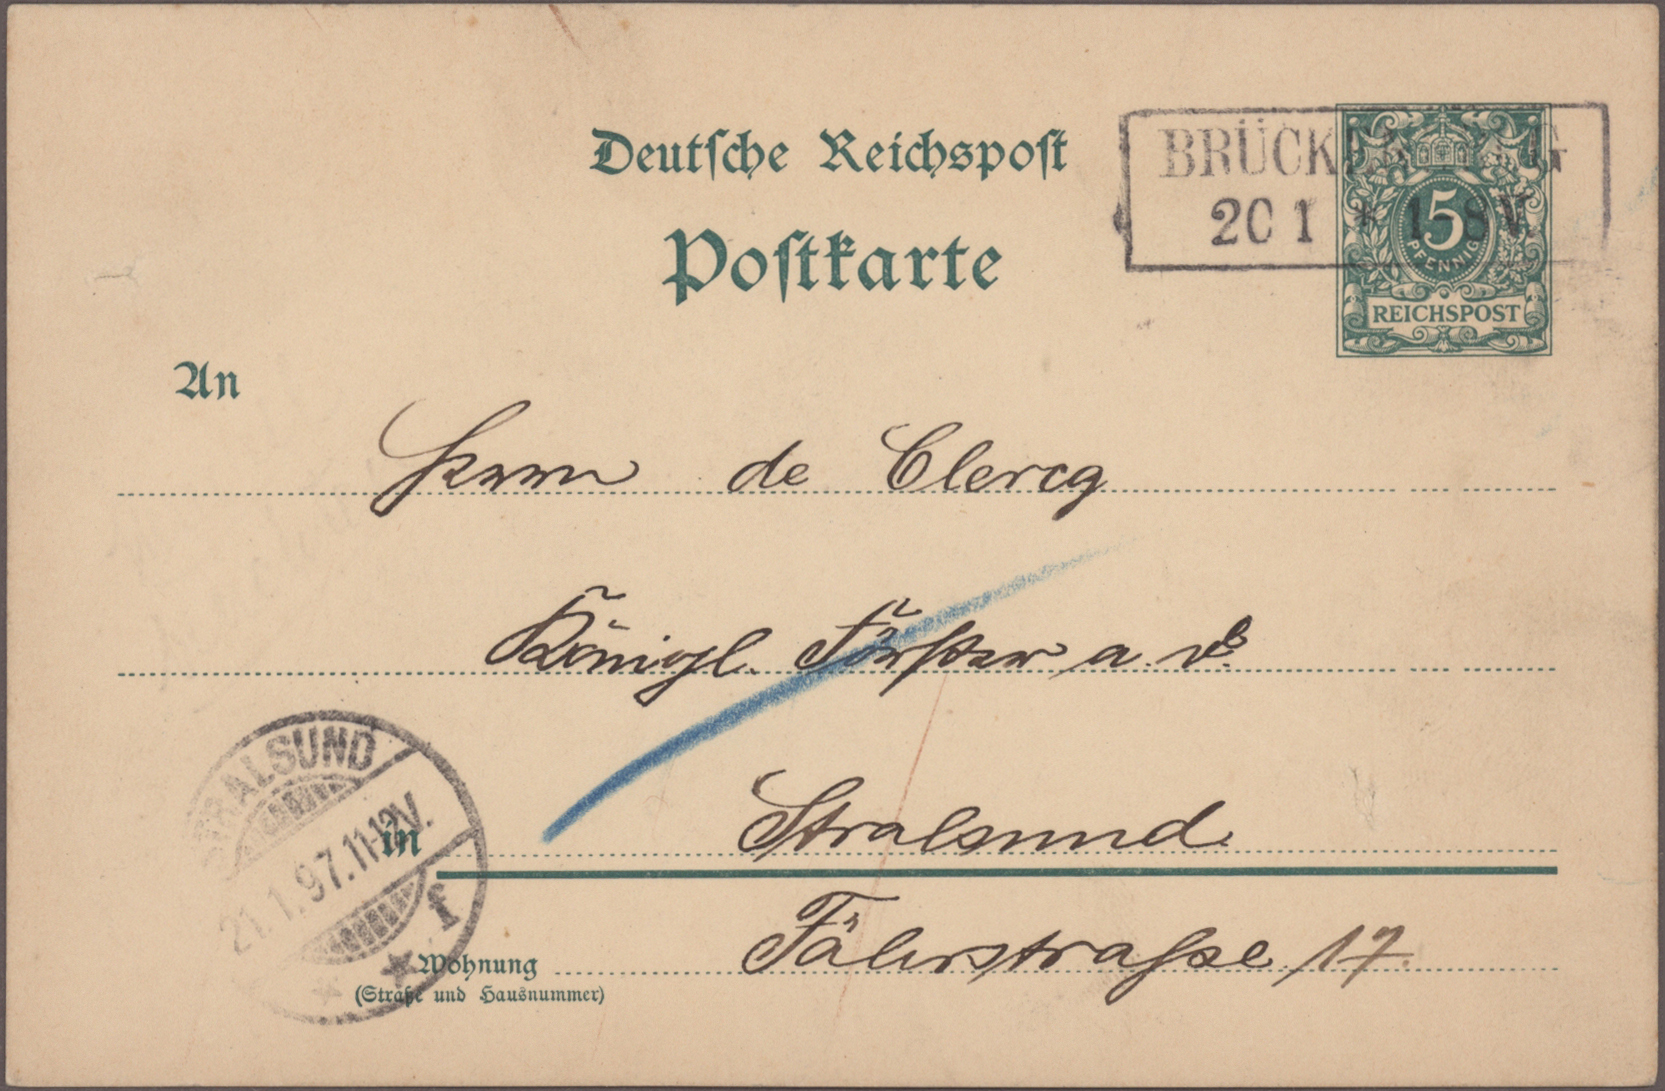 Deutsche Reichspost
Postkarte
20 1 * 1-8V.
5
PFENNIG
REICHSPOST
An
Herrn de Clercq
Königl. Förster a. D.
STRALSUND
21.1.97.11-12V.
f
in Stralsund
Wohnung Fährstraße 17.
(Straße und Hausnummer)